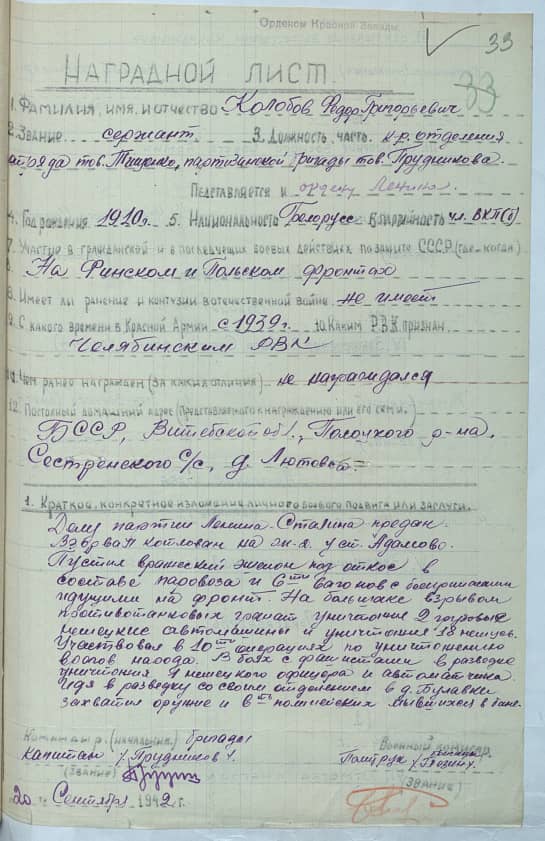 Орденом Красной Звезды
33
33
НАГРАДНОЙ ЛИСТ.
1. ФАМИЛИЯ, ИМЯ, И ОТЧЕСТВО Колобов Федор Григорьевич
2. ЗВАНИЕ сержант 3. ДОЛЖНОСТЬ, ЧАСТЬ к-р отделения
отряда тов. Тищенко, партизанской бригады тов. Прудникова
ПЕДСТАВЛЯЕТСЯ К ордену Ленина
4. ГОД РОЖДЕНИЯ 1910г. 5. НАЦИОНАЛЬНОСТЬ Белорусс 6. ПАРТИЙНОСТЬ чл. ВКП(б)
7. УЧАСТИЕ В ГРАЖДАНСКОЙ И В ПОСЛЕДУЮЩИХ БОЕВЫХ ДЕЙСТВИЯХ ПО ЗАЩИТЕ СССР (ГДЕ-КОГДА)
На Финском и Польском фронтах
8. ИМЕЕТ ЛИ РАНЕНИЕ И КОНТУЗИИ В ОТЕЧЕСТВЕННОЙ ВОЙНЕ не имеет
9. С КАКОГО ВРЕМЕНИ В КРАСНОЙ АРМИИ с 1939г. 10. КАКИМ РВК ПРИЗНАН
Челябинским РВК
11. ЧЕМ РАНЕЕ НАГРАЖДЕН (ЗА КАКИЕ ОТЛИЧИЯ) не награждался
12. ПОСТОЯННЫЙ ДОМАШНИЙ АДРЕС (ПРЕДСТАВЛЯЕМОГО К НАГРАЖДЕНИЮ ИЛИ ЕГО СЕМЬИ.
БССР, Витебской обл., Полоцкого р-на,
Сестренского с/с, д. Лютовка.
1. КРАТКОЕ, КОНКРЕТНОЕ ИЗЛОЖЕНИЕ ЛИЧНОГО БОЕВОГО ПОДВИГА ИЛИ ЗАСЛУГИ.
Делу партии Ленина-Сталина предан.
Взорвал котлован на ж.д. у ст. Адамово.
Пустил вражеский эшелон под откос в
составе паровоза и 6ти вагонов с боеприпасами
идущими на фронт. На большаке взрывом
противотанковых гранат уничтожил 2 груженые
немецкие автомашины и уничтожил 18 немцев.
Участвовал в 10ти операциях по уничтожению
врагов народа. В боях с фашистами в разведке
уничтожил 1 немецкого офицера и автоматчика.
Идя в разведку со своим отделением в д. Булавки
захватил оружие и 6ть полицейских мывшихся в бане.
Командир (НАЧАЛЬНИК) бригады
Военный комиссар
бригады
Капитан /Прудников/.
Политрук
(ЗВАНИЕ)
(ЗВАНИЕ)
20 Сентября 1942 г.